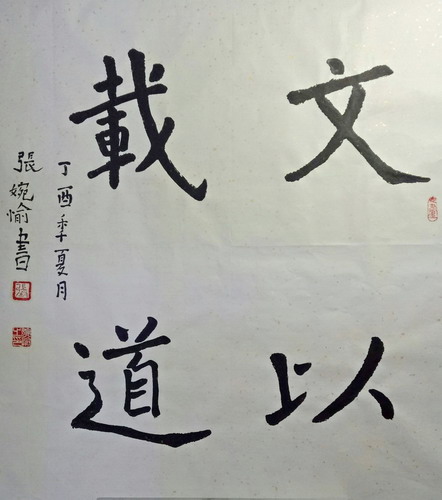 文以
載道
丁酉季夏月
張婉愉書